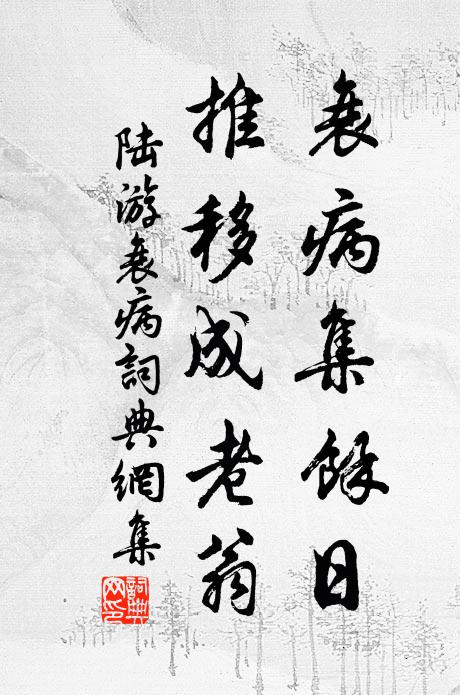 衰病集餘日
推移成老翁
陆游衰病詞典網集
詞典